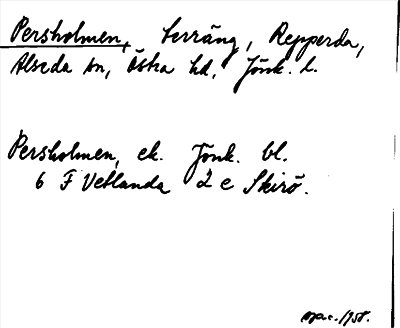 Persholmen, terräng, Repperda,
Alseda sn, Östra hd, Jönk. l.
Persholmen, ek. Jönk. bl.
6 F Vetlanda 2 e Skirö.
1958.